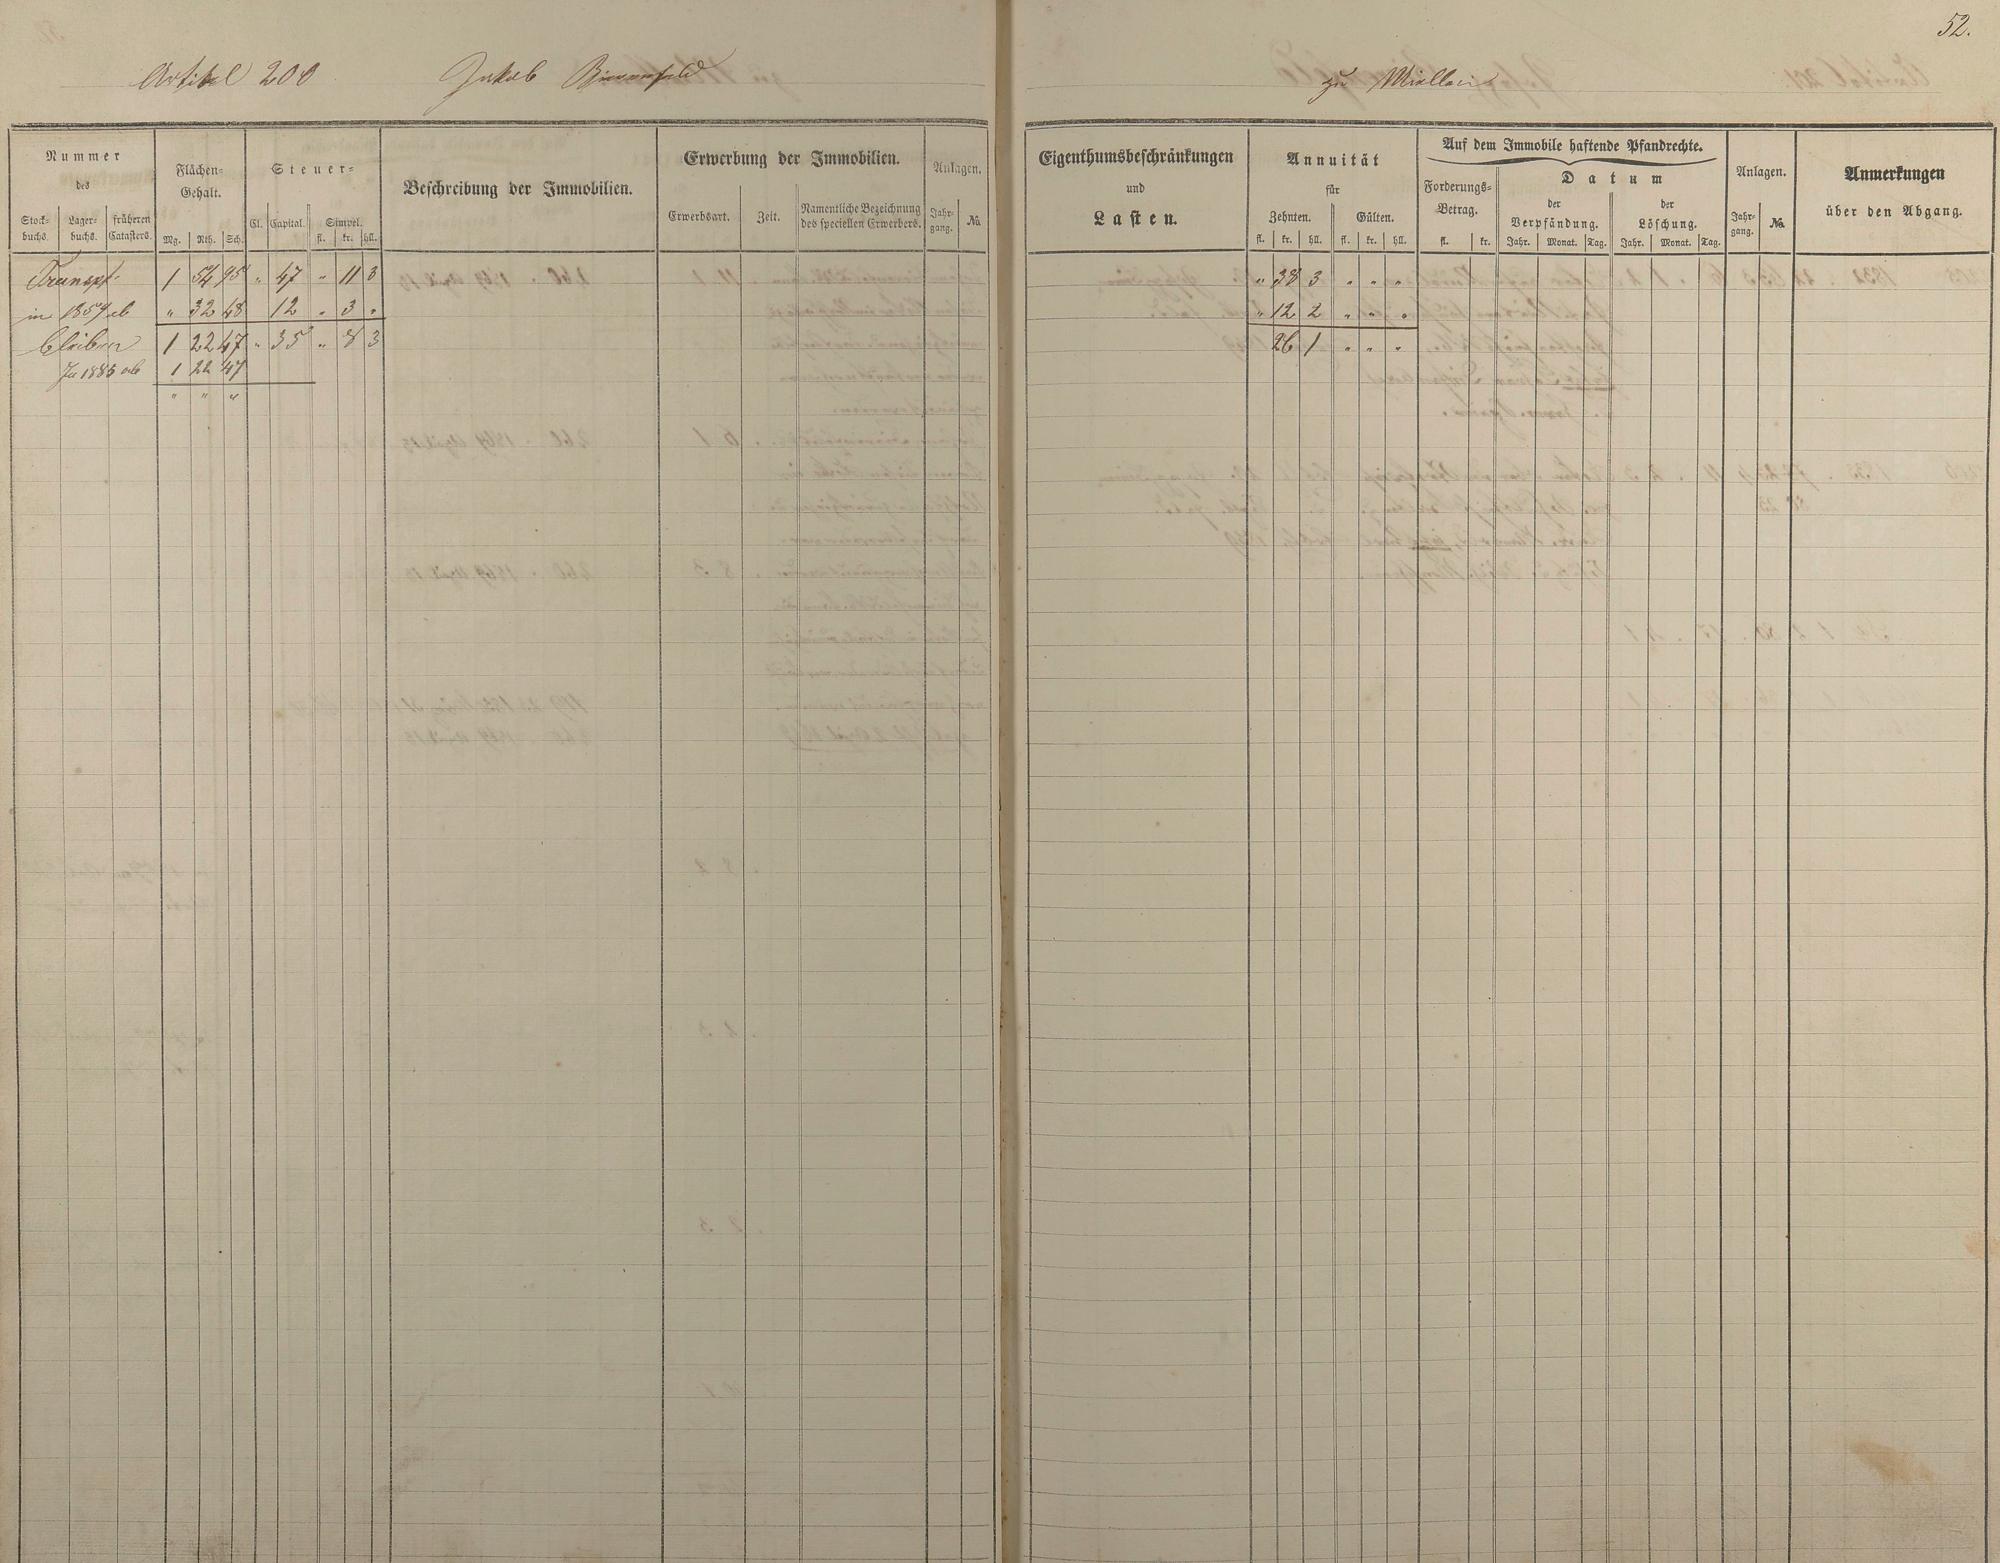 52.
Artikel 200 Jakob Birnenfeld zu Miellen
Nummer des
Stock-buchs. Lager-buchs. früheren Catasters.
Flächen-Gehalt.
Mg. Rth. Sch.
Steuer-
Cl. Capital. Simpel.
fl. kr. hll.
Beschreibung der Immobilien.
Erwerbung der Immobilien.
Erwerbsart. Zeit. Namentliche Bezeichnung des speciellen Erwerbers.
Anlagen.
Jahr-gang. No.
Eigenthumsbeschränkungen
und
Lasten.
Annuität
für
Zehnten. Gülten.
fl. kr. hll. fl. kr. hll.
Auf dem Immobile haftende Pfandrechte.
Forderungs-Betrag.
fl. kr.
Datum
der Verpfändung. der Löschung.
Jahr. Monat. Tag. Jahr. Monat. Tag.
Anlagen.
Jahr-gang. No.
Anmerkungen
über den Abgang.
Transpt. 1 54 95 " 47 " 11 3 " 38 3 " " "
in 1859 ab " 32 48 12 " 3 " " 12 2 " " "
bleiben 1 22 47 " 35 " 8 3 26 1 " " "
In 1885 ab 1 22 47
" " "